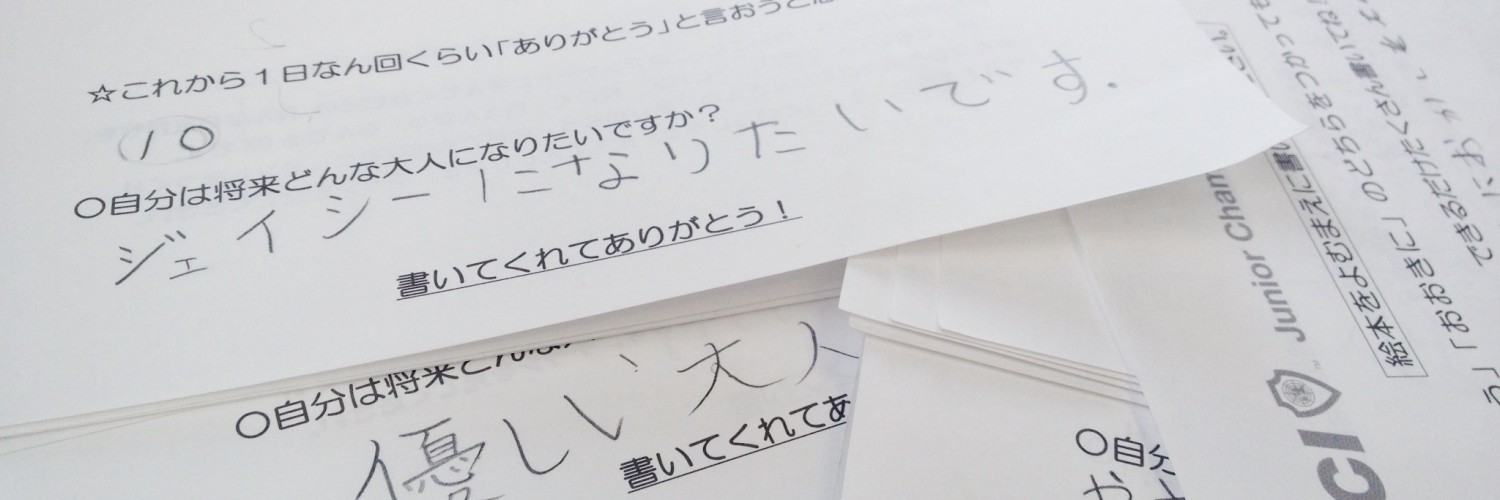 ☆これから１日なん回くらい「ありがとう」と言おうと
10
〇自分は将来どんな大人になりたいですか？
ジェイシーになりたいです.
書いてくれてありがとう！
〇自分は将来どんな
優しい大人
書いてくれてあ
〇自分
Junior Cham
CI
絵本をよむまえに書い
「おおきに」のどちらをつかって
できるだけたくさん書いてね
う」「おおきに」
にお